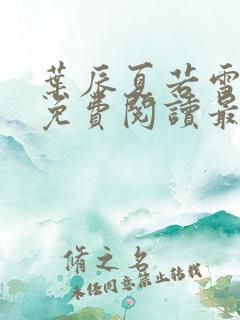 葉辰夏若雪
免費閱讀最
脩之名
未任同意禁止轉載